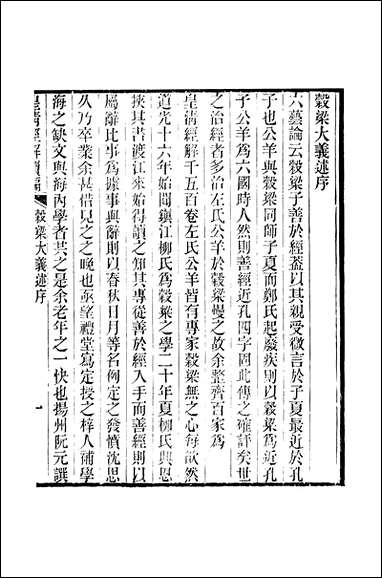 穀梁大義述序
六藝論云穀梁子善於經葢以其親受微言於子夏最近於孔
子也公羊與穀梁同師子夏而鄭氏起廢疾則以穀梁爲近孔
子公羊爲六國時人然則善經近孔四字固此傳之確評矣世
之治經者多治左氏公羊於穀梁慢之故余整齊百家爲
皇清經解千五百卷左氏公羊皆有專家穀梁無之心每欿然
道光十六年始聞鎭江柳氏爲穀梁之學二十年夏柳氏興恩
挾其書渡江來始得讀之知其專從善於經入手而善經則以
屬辭比事爲據事與辭則以春秋日月等名例定之發憤沈思
久乃卒業余甚惜見之之晚也亟望禮堂寫定授之梓人補學
海之缺文與海內學者共之是余老年之一快也揚州阮元譔
皇淸經解續編
穀梁大義述序
一